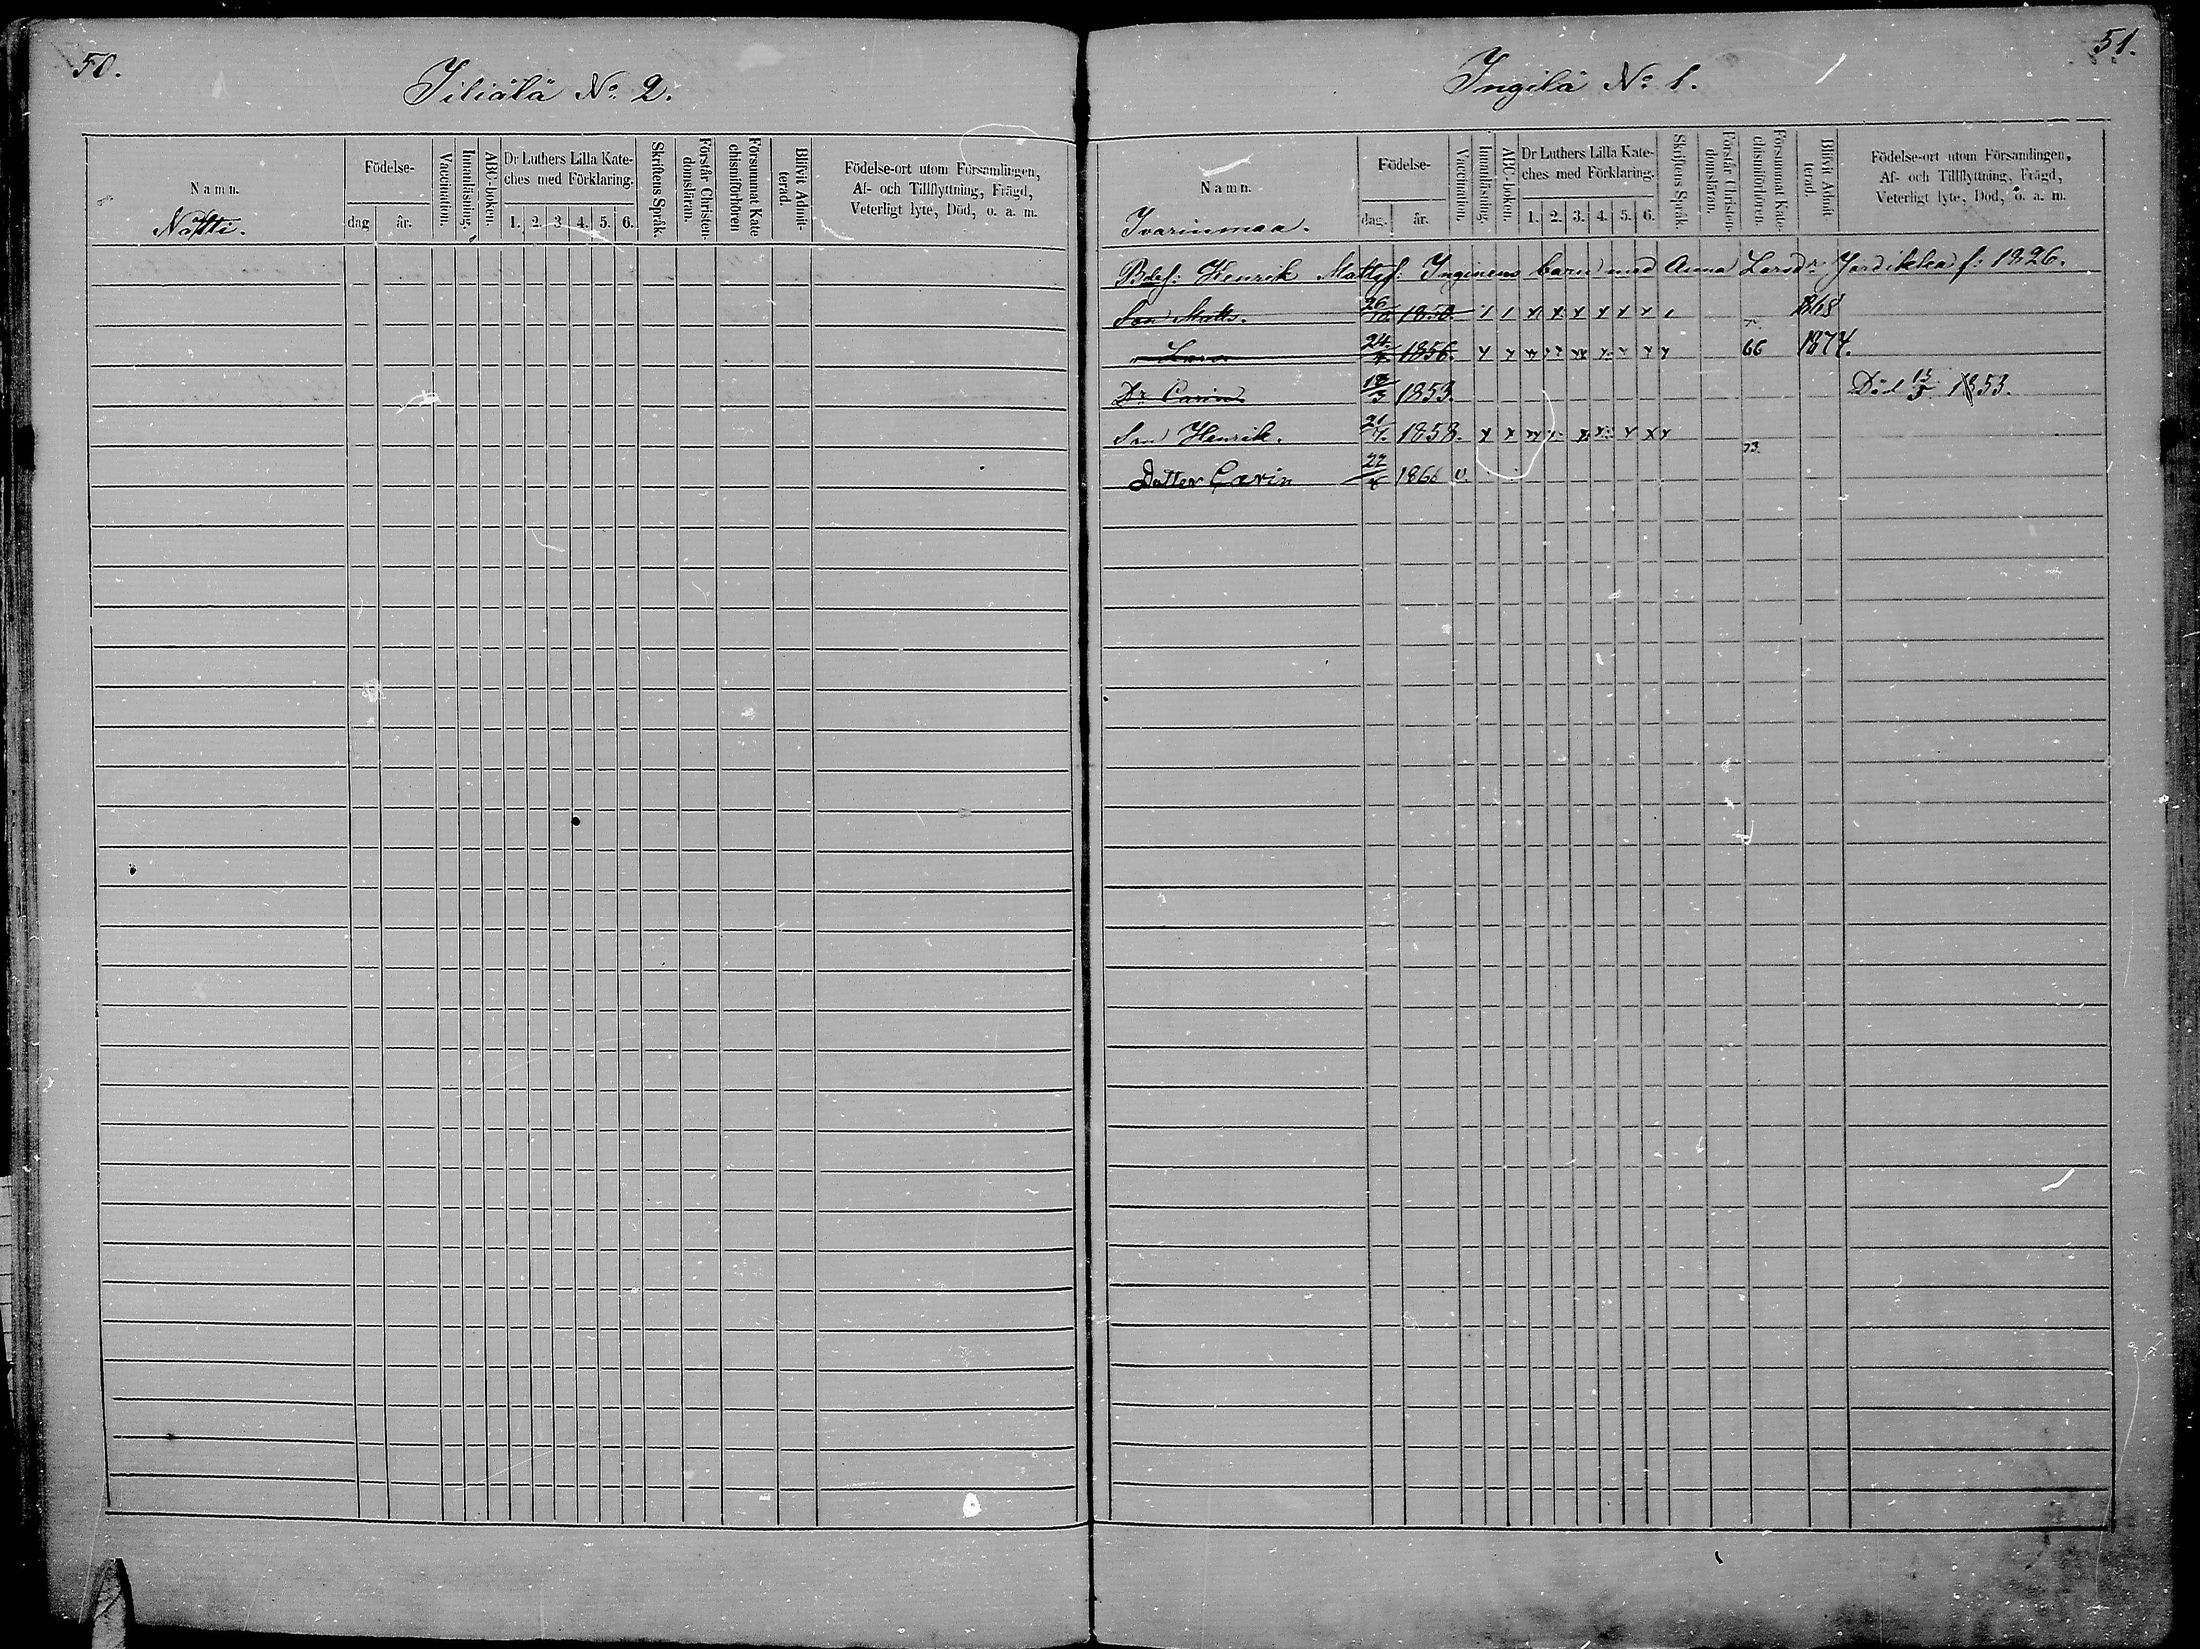 50.
Jiliälä No 2.
Namn.
Födelse-
dag
år.
Vaccination.
Innanläsning.
ABC-boken.
Dr Luthers Lilla Kate-
ches med Förklaring.
1. 2. 3 4. 5. 6.
Skriftens Språk.
Förstår Christen-
domsläran.
Försummat Kate
chismiförhören
Blifvit Admit-
terad.
Födelse-ort utom Församlingen,
Af- och Tillflyttning, Frägd,
Veterligt lyte, Död, o. a. m.
Nätti.
51.
Ingilä No 1.
Namn.
Födelse-
dag.
år.
Vaccination.
Innanläsning.
ABC-boken.
Dr Luthers Lilla Kate-
ches med Förklaring.
1. 2. 3. 4. 5. 6.
Skriftens Språk.
Förstår Christen-
domsläran.
Försummat Kate-
chismiförhören.
Blifvit Admit-
terad.
Födelse-ort utom Församlingen,
Af- och Tillflyttning, Frägd,
Veterligt lyte, Död, o. a. m.
Ivarinmaa.
Henrik Mattsf: Inginens barn med Anna Larsdr Jordikka f: 1826.
Son Matts. 26/10 1850. 1 1 x x x x x x 1 1868
" Lars 24 1856. x x x x x x x x x 66 1874.
Dr Carin. 18/3 1853. Död 15/5 1853.
Son Henrik. 21 1858. x x x x x x x x x 73.
Dotter Carin 22 1866 v.